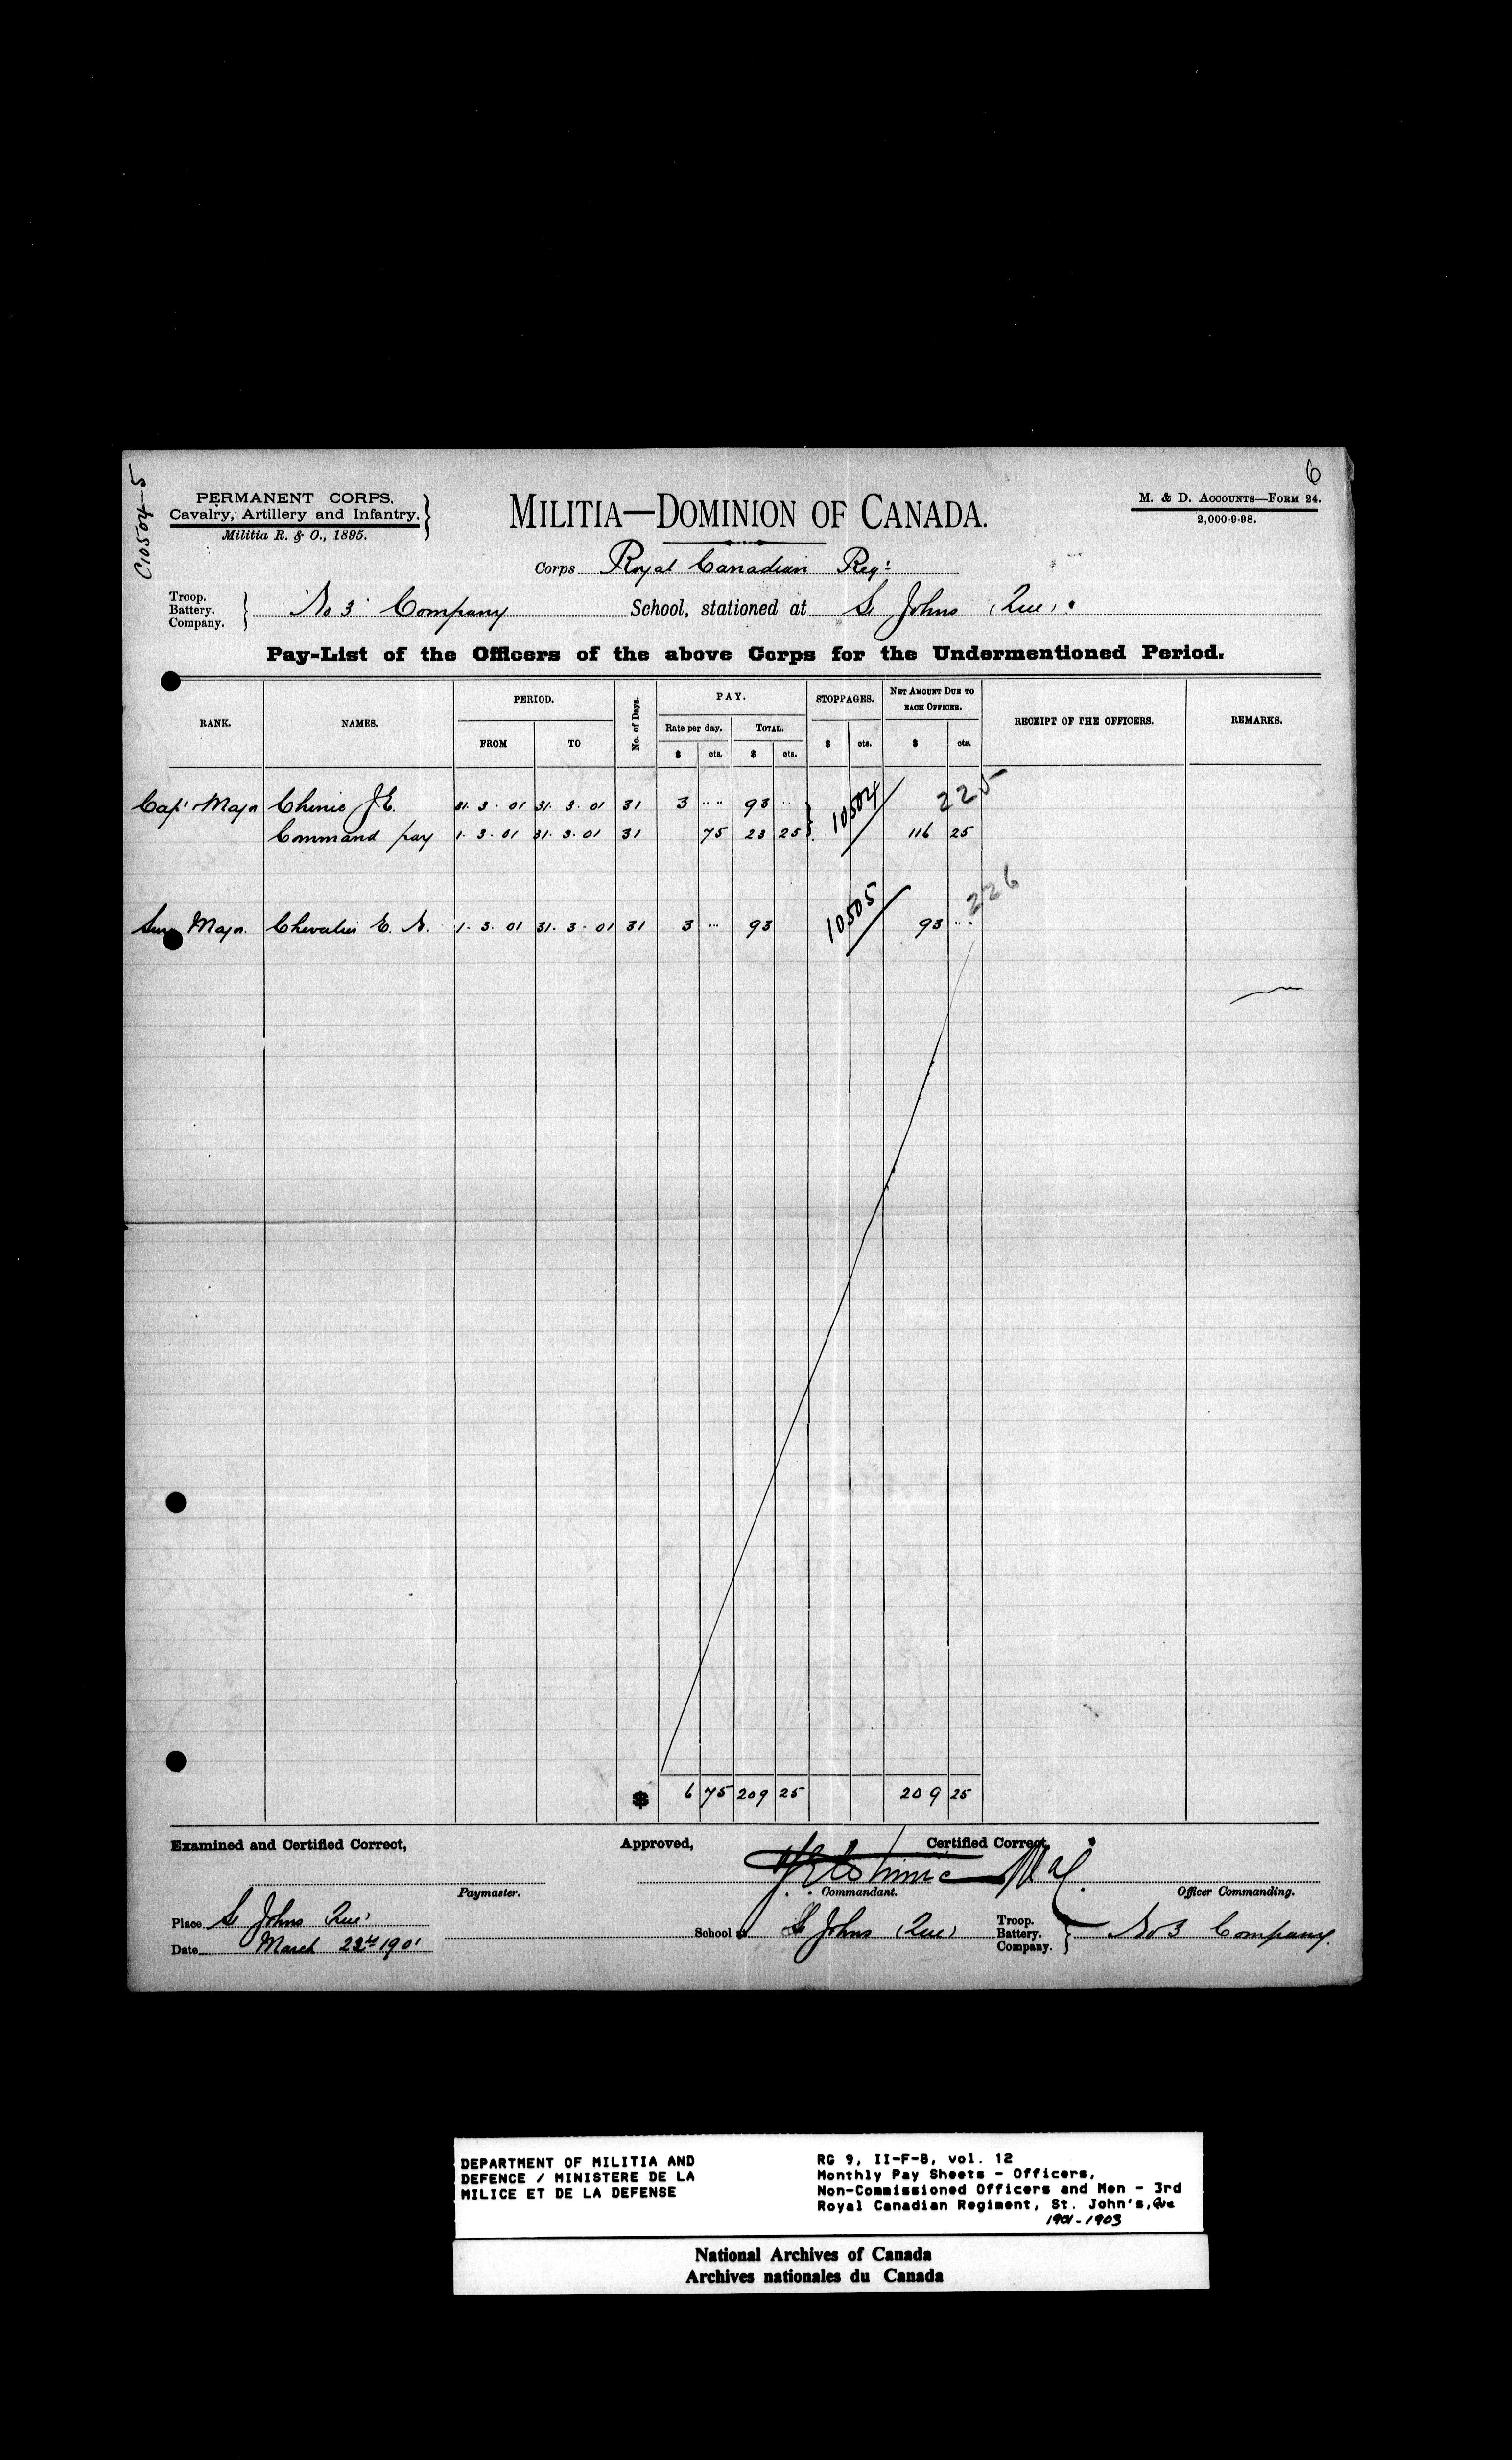 6
C10504-5
PERMANENT CORPS.
Cavalry, Artillery and Infantry.
Militia R. & O., 1895.
MILITIA—DOMINION OF CANADA.
M. & D. ACCOUNTS—FORM 24.
2,000-9-98.
Corps Royal Canadian Regt
Troop. Battery. Company. No 3 Company School, stationed at St Johns (Que).
Pay-List of the Officers of the above Corps for the Undermentioned Period.
RANK. NAMES. PERIOD. No. of Days. PAY. STOPPAGES. NET AMOUNT DUE TO EACH OFFICER. RECEIPT OF THE OFFICERS. REMARKS.
FROM TO Rate per day. TOTAL.
$ cts. $ cts. $ cts. $ cts.
Capt Major Chinic J.E. 31. 3. 01 31. 3. 01 31 3 .. .. 93 .. 10504 225
Command pay 1. 3. 01 31. 3. 01 31 75 23 25 116 25
Surg Major. Chevalier E. N. 1. 3. 01 31. 3. 01 31 3 ... 93 10505 93 ... 226
$ 6 75 209 25 209 25
Examined and Certified Correct, Approved, Certified Correct,
J E Chinic Maj.
Paymaster. Commandant. Officer Commanding.
Place St Johns Que)
School at St Johns (Que) Troop. Battery. Company. No 3 Company.
Date March 22nd 1901
DEPARTMENT OF MILITIA AND
DEFENCE / MINISTERE DE LA
MILICE ET DE LA DEFENSE
RG 9, II-F-8, vol. 12
Monthly Pay Sheets - Officers,
Non-Commissioned Officers and Men - 3rd
Royal Canadian Regiment, St. John's, Que
1901-1903
National Archives of Canada
Archives nationales du Canada